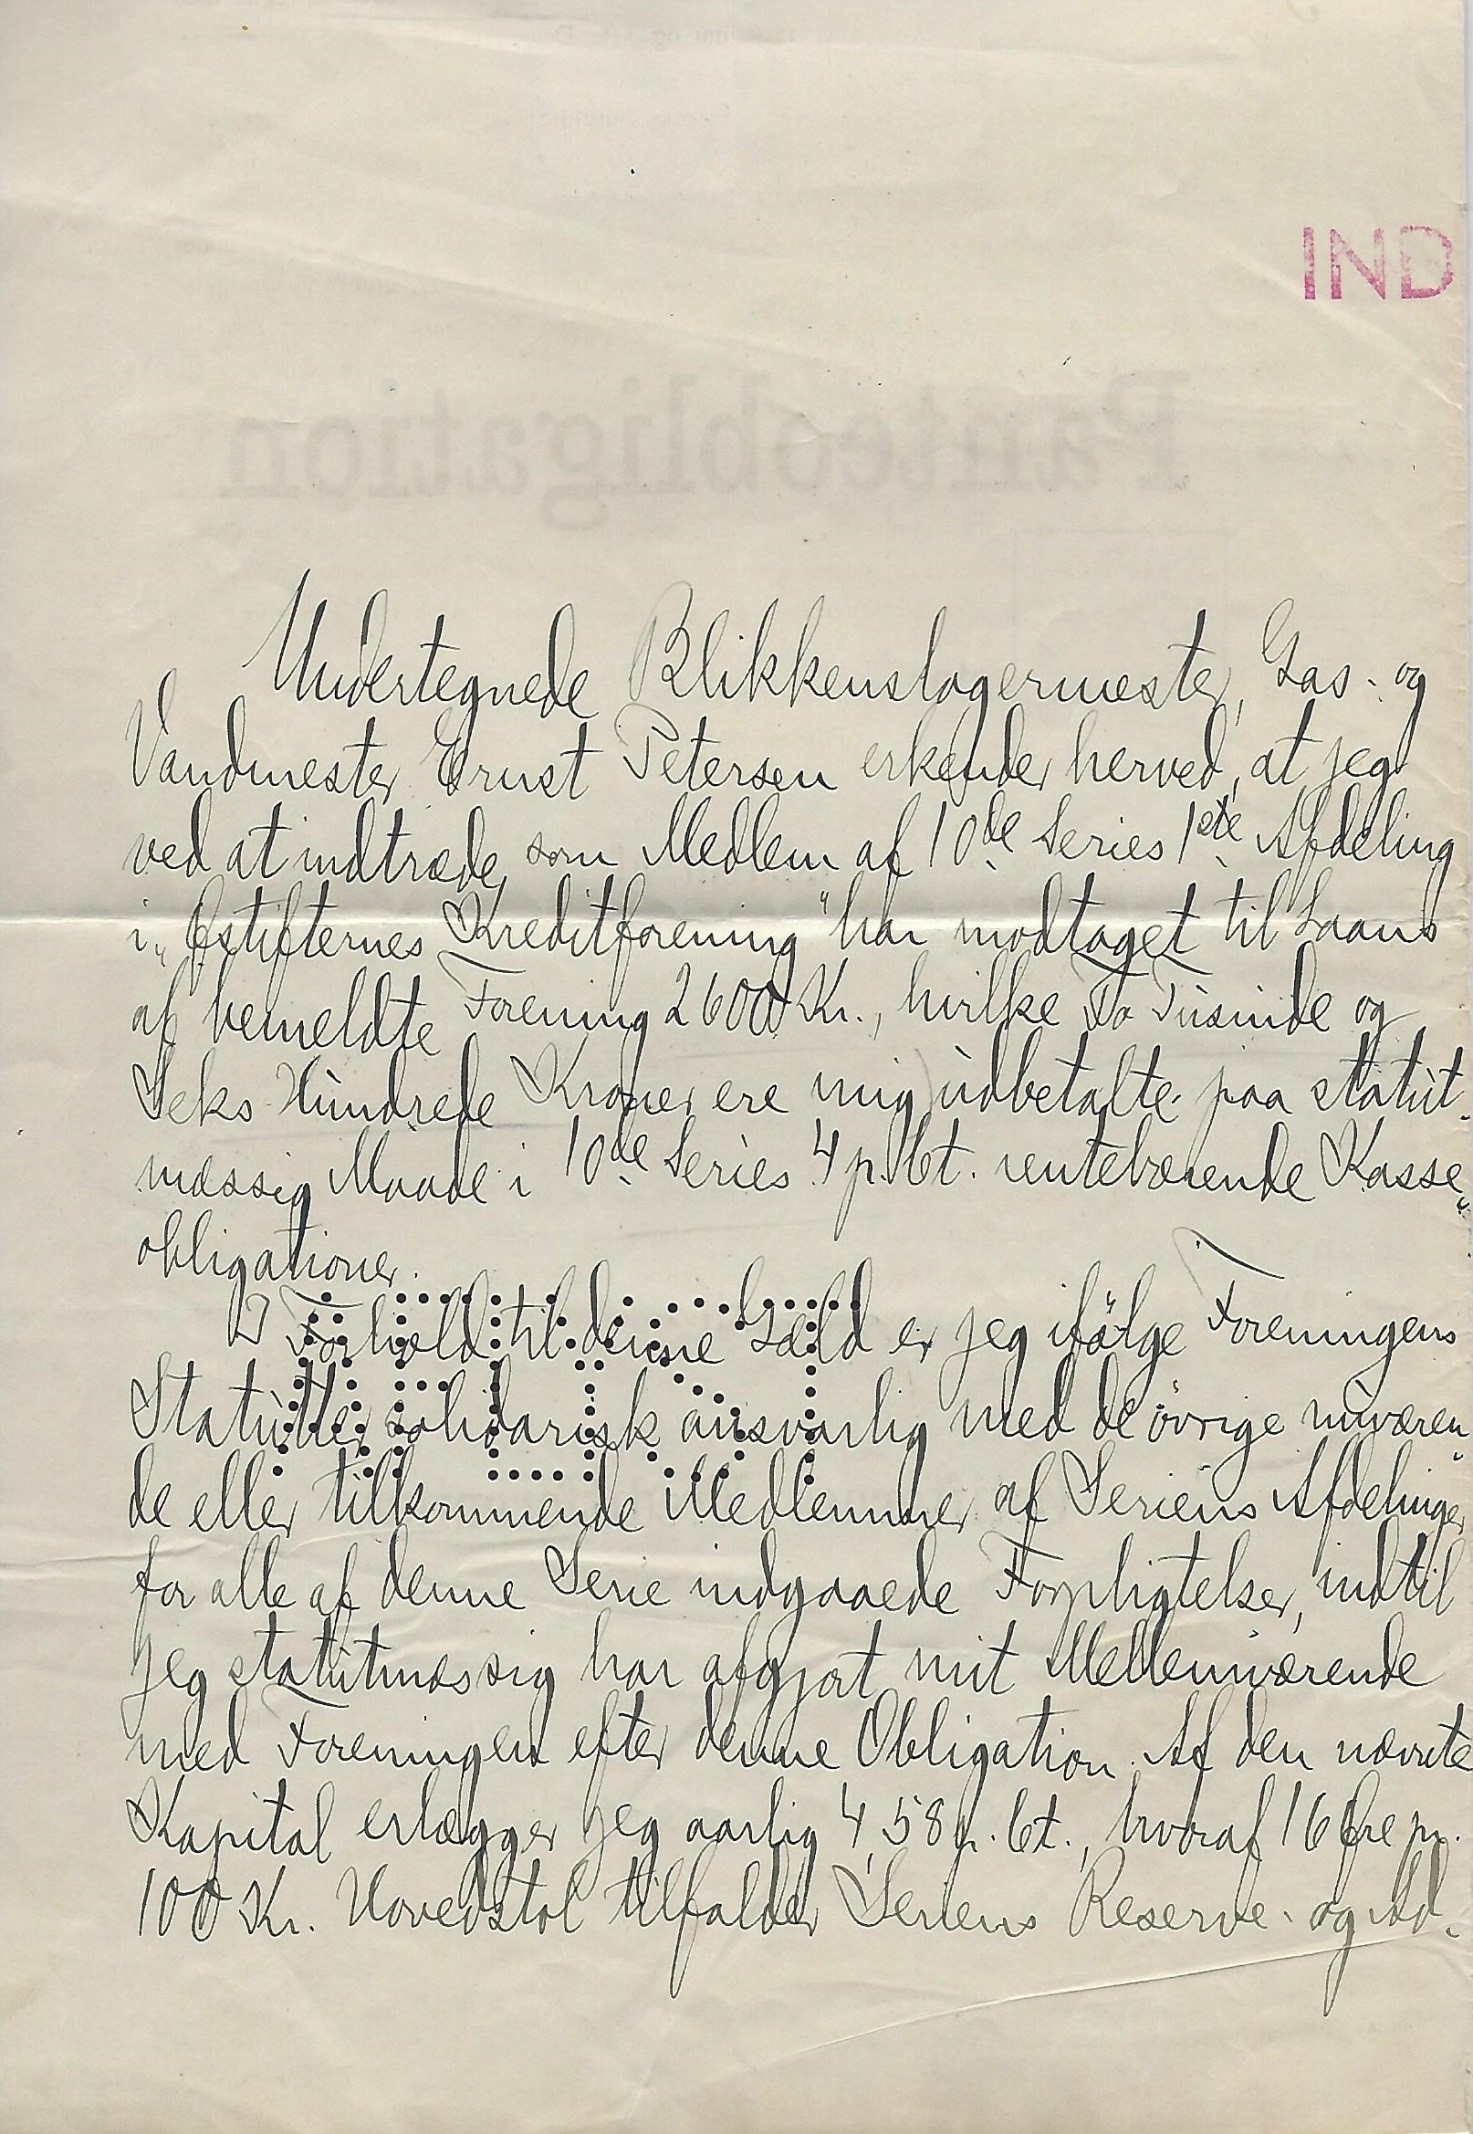 IND
Undertegnede Blikkenslagermester, Gas- og
Vandmester Ernst Petersen erkender herved, at jeg
ved at indtræde som Medlem af 10de Series 1ste Afdeling
i „Østifternes Kreditforening" har modtaget til Laans
af bemeldte Forening 2600 Kr., hvilke To Tusinde og
Seks Hundrede Kroner ere mig udbetalte paa statut-
mæssig Maade i 10de Series 4 p. Ct. rentebærende Kasse-
obligationer.
I Forhold til denne Gæld er jeg ifølge Foreningens
Statutter solidarisk ansvarlig med de øvrige nuværen-
de eller tilkommende Medlemmer af Seriens Afdelinger
for alle af denne Serie indgaaede Forpligtelser, indtil
jeg statutmæssig har afgjort mit Mellemværende
med Foreningen efter denne Obligation. Af den nævnte
Kapital erlægger jeg aarlig 4,58 p. Ct., hvoraf 16 Øre pr.
100 Kr. Hovedstol tilfalder Seriens Reserve- og Ad-
Panteobligation